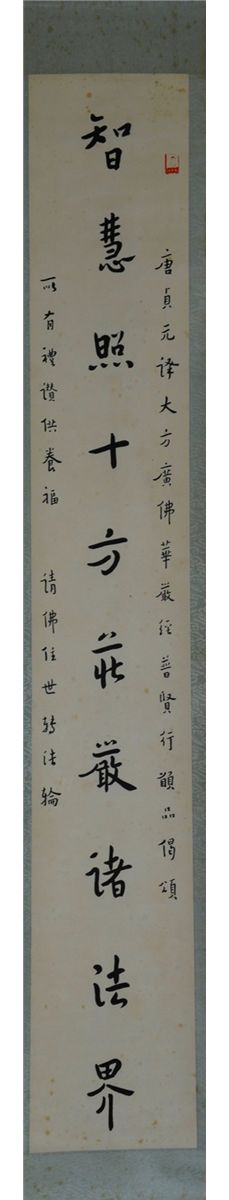 唐貞元译大方廣佛華嚴經普賢行願品偈頌
智慧照十方莊嚴諸法界
所有禮讚供養福 請佛住世转法輪